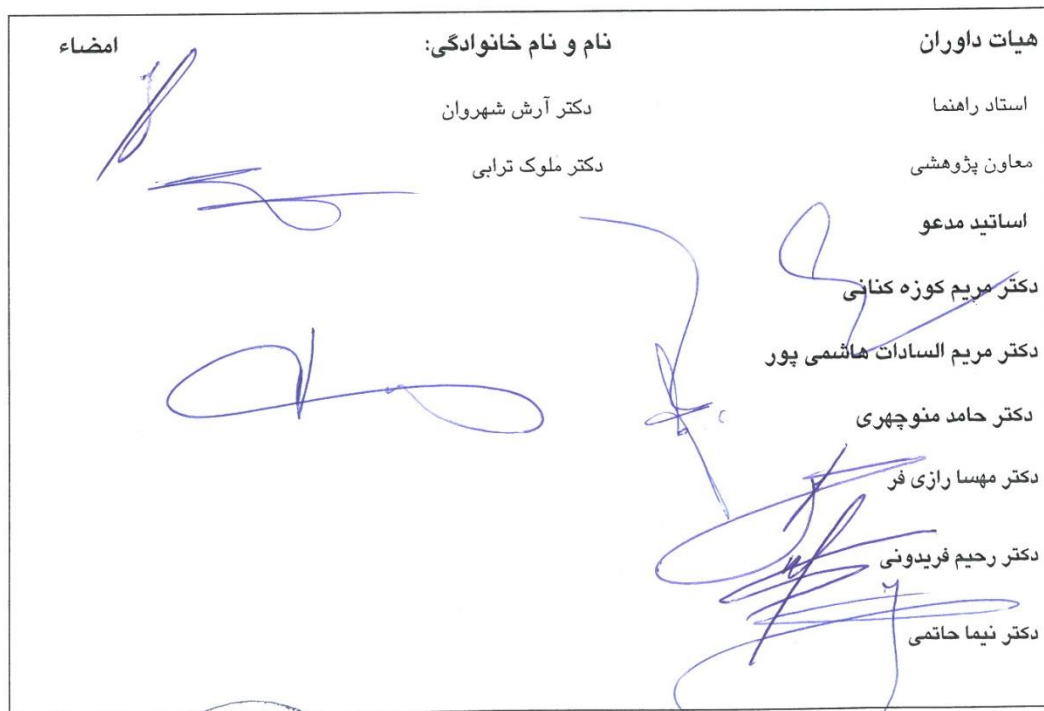 هیات داوران نام و نام خانوادگی: امضاء
استاد راهنما دکتر آرش شهروان
معاون پژوهشی دکتر ملوک ترابی
اساتید مدعو
دکتر مریم کوزه کنانی
دکتر مریم السادات هاشمی پور
دکتر حامد منوچهری
دکتر مهسا رازی فر
دکتر رحیم فریدونی
دکتر نیما حاتمی